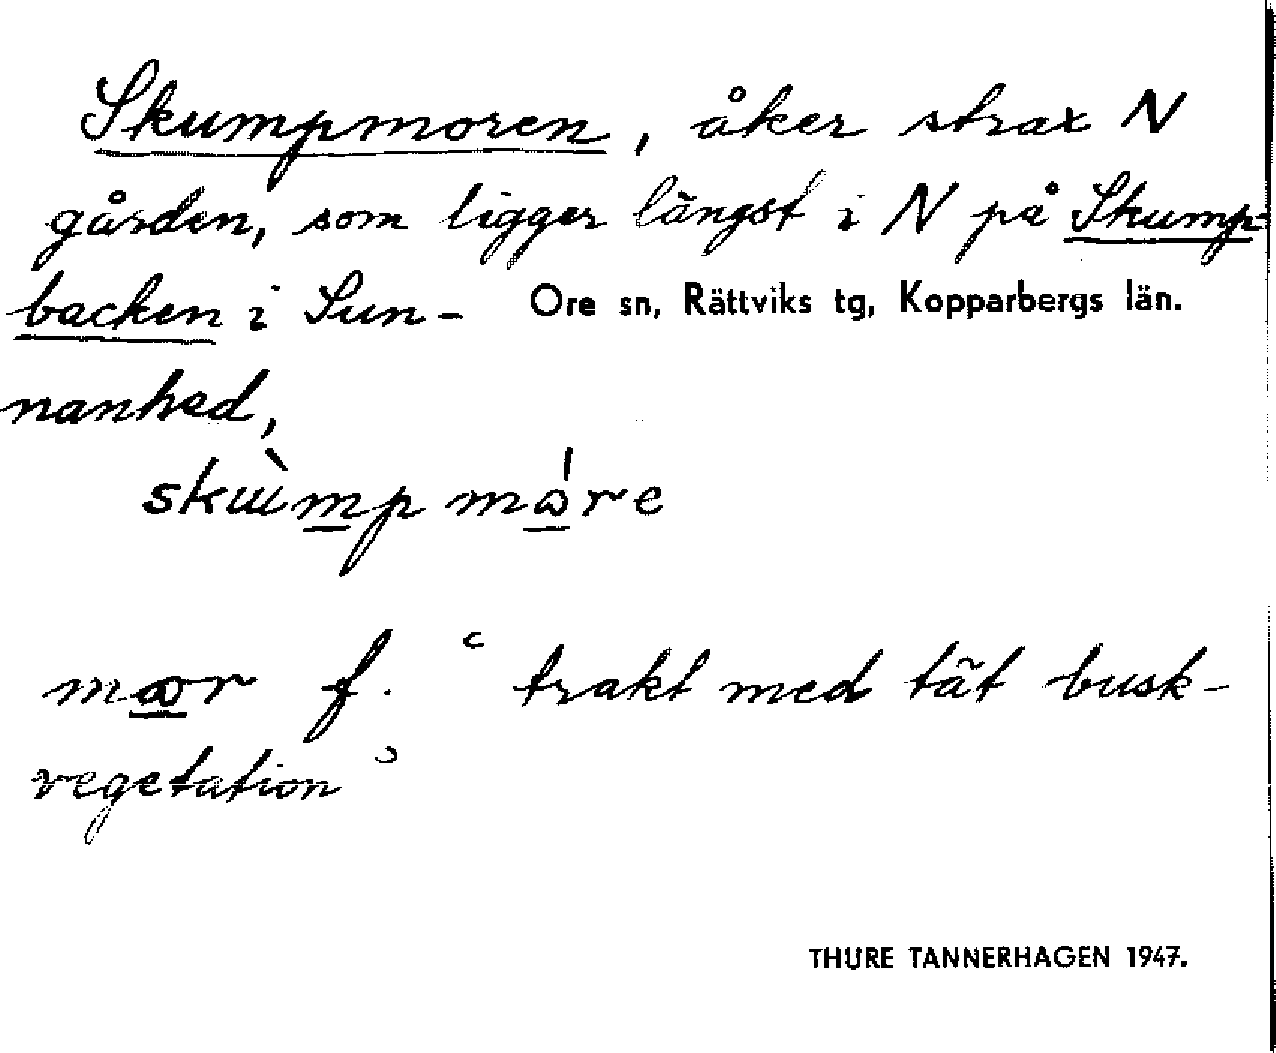 Skumpmoren, åker strax N
gården, som ligger längst i N på Skump-
backen i Sun-
Ore sn, Rättviks tg, Kopparbergs län.
nanhed,
skɯ̀mp mω̍re
mωr f. ʿtrakt med tät busk-
vegetationʾ
THURE TANNERHAGEN 1947.